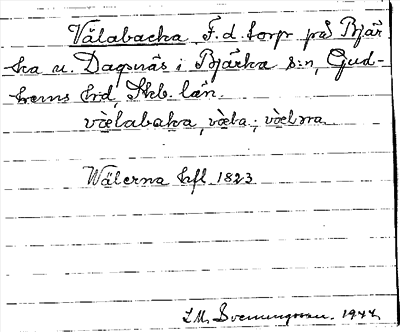 Välabacka F.d. torp på Bjär
ka u. Dagsnäs i Bjärka s:n, Gud-
hems hrd, Skb. län.
vœ̀labaka, vœla; vœ̀lɔrna
Wälerna hfl 1823
I.M. Svenungsson. 1944